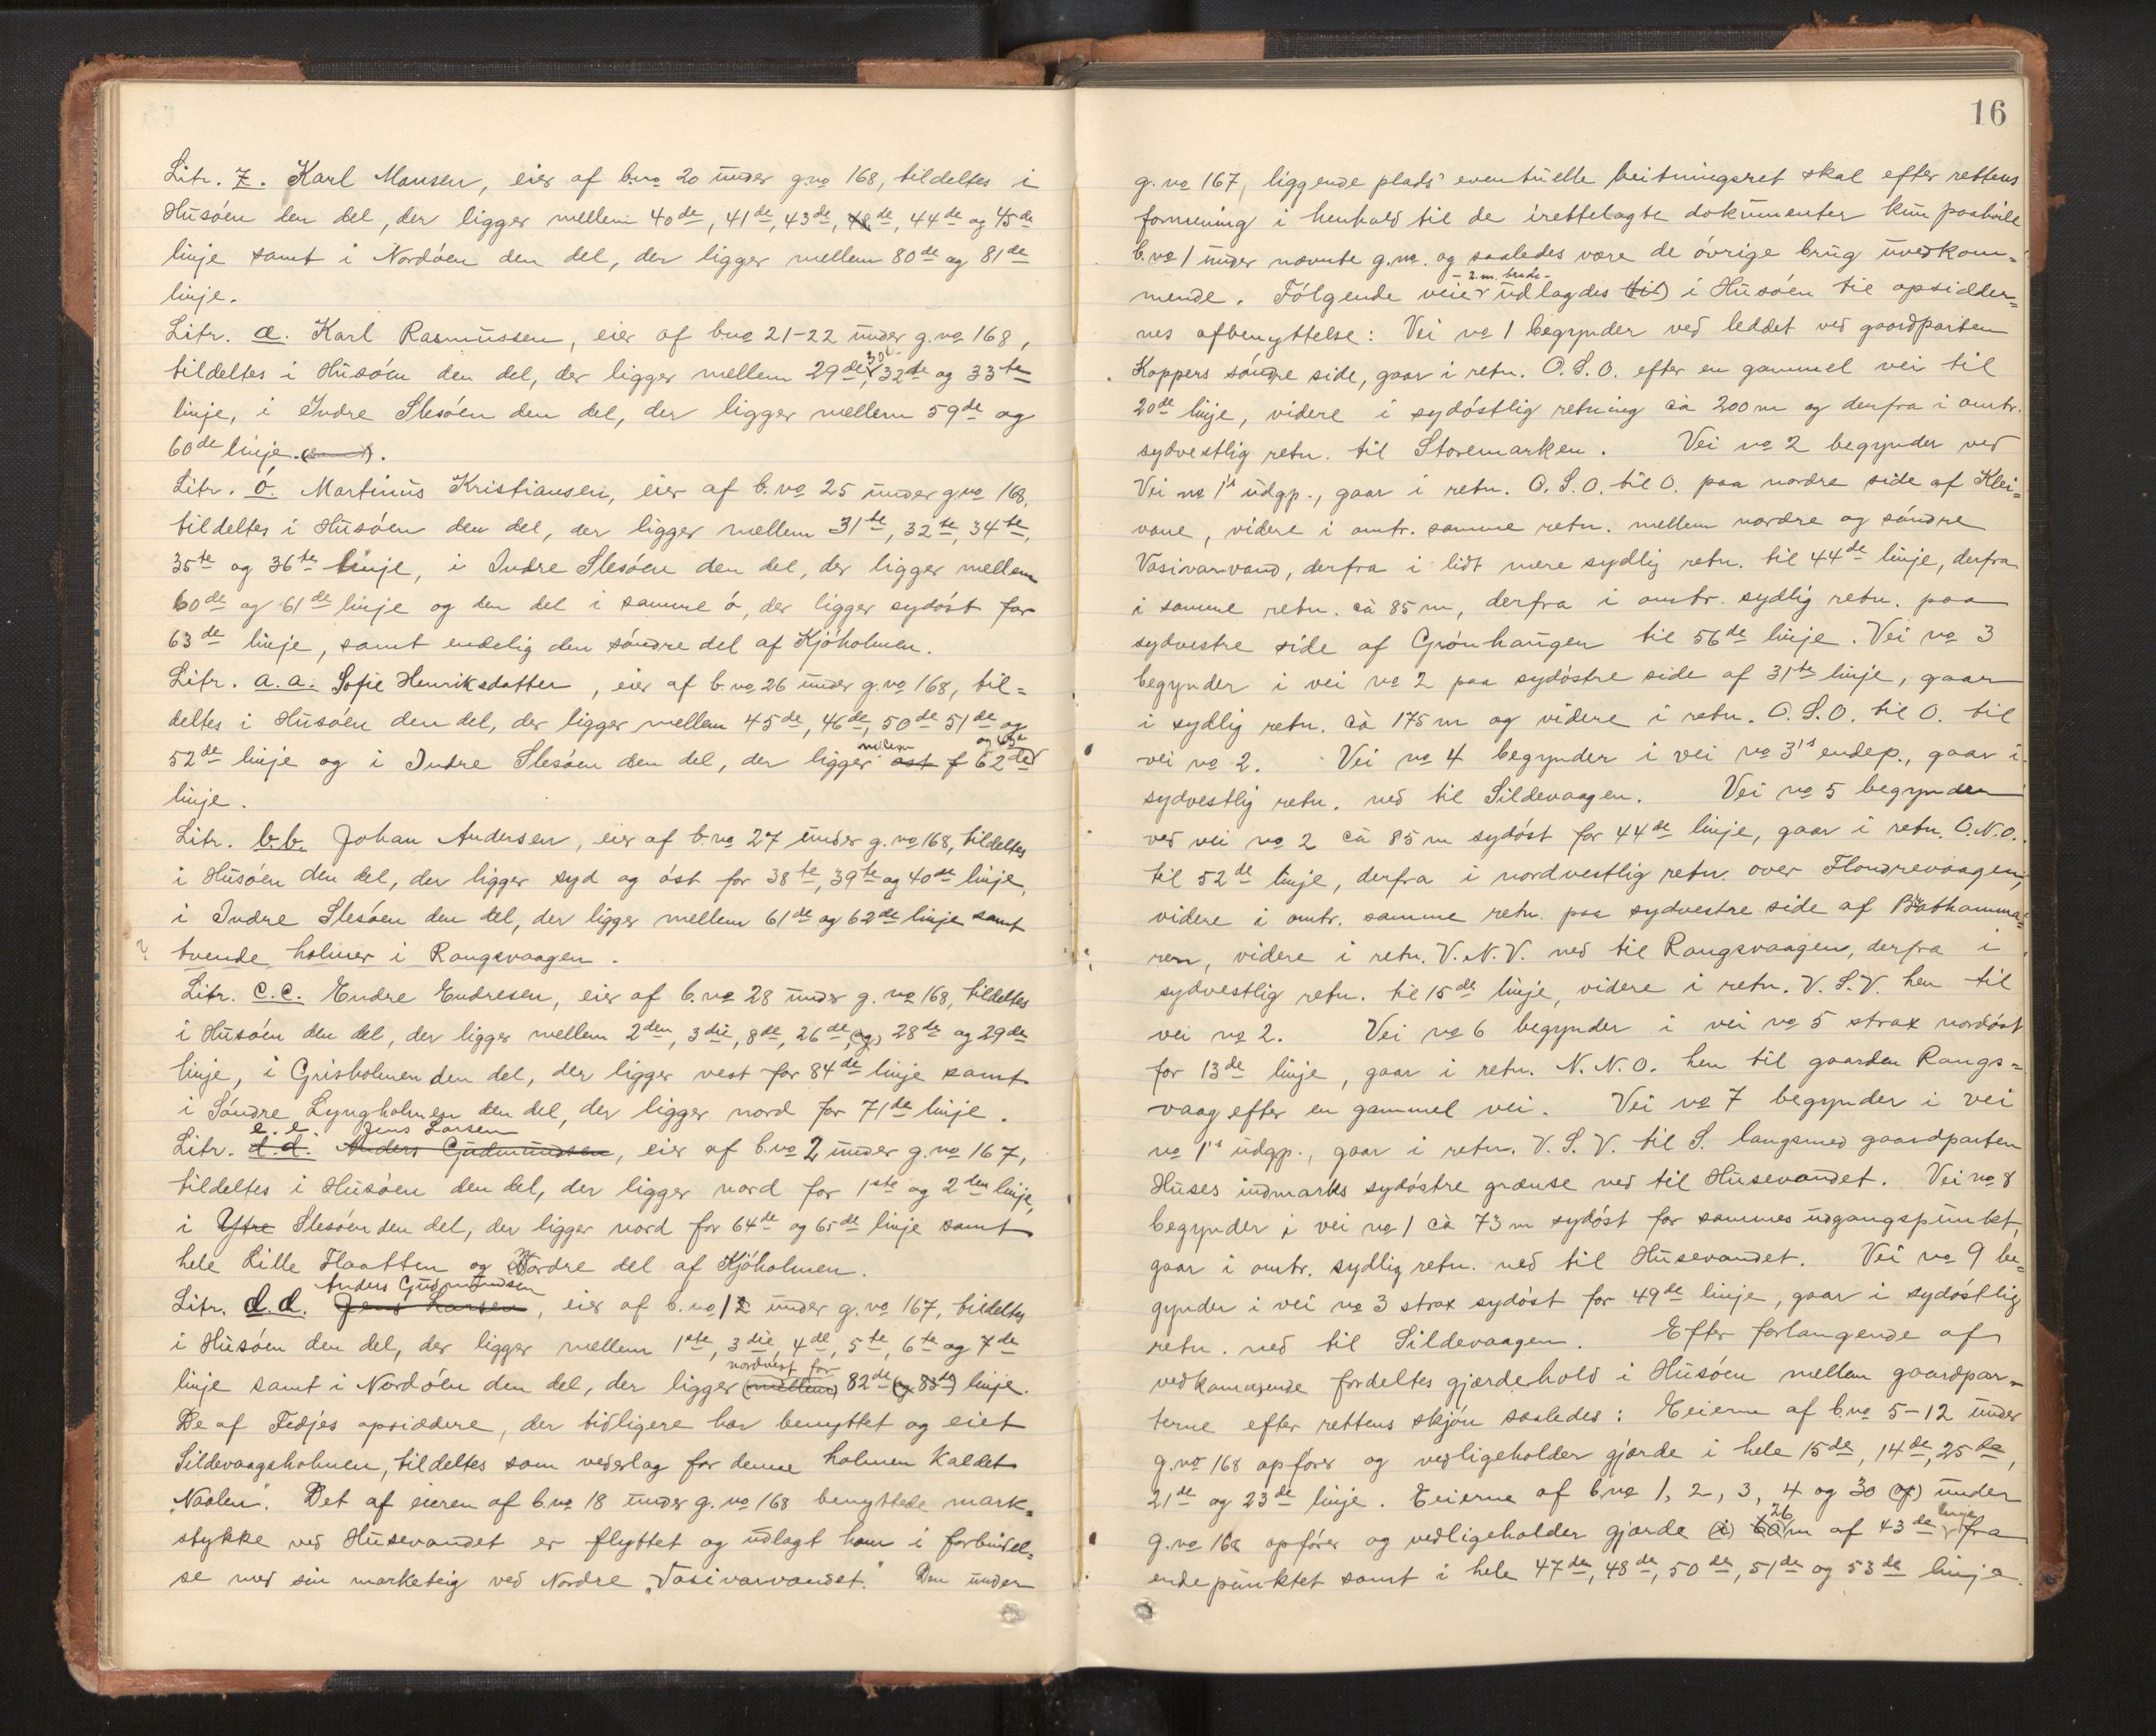 Litr. z. Karl Monsen, eier af b.no 20 under g.no 168, tildeltes i
Husøen den del, der ligger mellem 40de, 41de, 43de, 48de, 44de og 45de
linje samt i Nordøen den del, der ligger mellem 80de og 81de
linje.
Litr. æ. Karl Rasmussen, eier af b.no 21-22 under g.no 168,
tildeltes i Husøen den del, der ligger mellem 29de, 30te, 32te og 33te
linje, i Indre Slesøen den del, der ligger mellem 59de og
60de linje. (samt).
Litr. ó. Martinus Kristiansen, eier af b.no 25 under g.no 168,
tildeltes i Husóen den del, der ligger mellem 31te, 32te, 34te,
35te og 36te linje, i Indre Slesóen den del, der ligger mellem
60de og 61de linje og den del i samme ó, der ligger sydóst for
63de linje, samt endelig den søndre del af Kjóholmen.
Litr. a.a. Sofie Henriksdatter, eier af b.no 26 under g.no 168, til=
deltes i Husóen den del, der ligger mellem 45de, 46de, 50de 51de og
52de linje og i Indre Slesóen den del, der ligger ost f mellem 62de og 63de
linje.
Litr. b.b. Johan Andersen, eier af b.no 27 under g.no 168, tildeltes
i Husóen den del, der ligger syd og óst for 38te, 39te og 40de linje,
i Indre Slesóen den del, der ligger mellem 61de og 62de linje samt
? tvende holmer i Rongsvaagen.
Litr. c.c. Endre Endresen, eier af b.no 28 under g.no 168, tildeltes
i Husóen den del, der ligger mellem 2den, 3die, 8de, 26de, (og) 28de og 29de
linje, i Grisholmen den del, der ligger vest for 84de linje samt
i Sóndre Lyngholmen den del, der ligger nord for 71de linje.
e.e. Jens Larsen
Litr. d.d. Anders Gudmundsen, eier af b.no 2 under g.no 167,
tildeltes i Husóen den del, der ligger nord for 1ste og 2den linje,
i Ytre Slesóen den del, der ligger nord for 64de og 65de linje samt
hele Lille Flaatten og Nordre del af Kjóholmen.
Anders Gudmundsen
Litr. d.d. Jens Larsen, eier af b.no 1 under g.no 167, tildeltes
i Husóen den del, der ligger mellem 1ste, 3die, 4de, 5te, 6te og 7de
nordvest for
linje samt i Nordóen den del, der ligger (mellem) 82de (og 83de) linje.
De af Fedjes opsiddere, der tidligere har benyttet og eiet
Sildevaagsholmen, tildeltes som vederlag for denne holmen kaldet
"Naalen". Det af eieren af b.no 18 under g.no 168 benyttede mark=
stykke ved Husevandet er flyttet og udlagt ham i forbindel=
se med sin marketeig ved Nordre "Vasivarvandet." Den under
16
g.no 167, liggende plads' eventuelle beitningsret skal efter rettens
formening i henhold til de irettelagte dokumenter kun paahvile
b.no 1 under nævnte g.no. og saaledes være de óvrige brug uvedkom=
mende. Fólgende veier udlagdes (til) i Husóen til opsidder=
nes afbenyttelse: Vei no 1 begynder ved leddet ved gaardparten
Koppers sóndre side, gaar i retn. O.S.O. efter en gammel vei til
20de linje, videre i sydóstlig retning cà 200 m og derfra i omtr.
sydvestlig retn. til Storemarken. Vei no 2 begynder ved
Vei no 1's udgp., gaar i retn. O.S.O. til O. paa nordre side af Klei=
vane, videre i omtr. samme retn. mellem nordre og sóndre
Vasivarvand, derfra i lidt mere sydlig retn. til 44de linje, derfra
i samme retn. cà 85 m, derfra i omtr. sydlig retn. paa
sydvestre side af Grónhaugen til 56de linje. Vei no 3
begynder i vei no 2 paa sydóstre side af 31te linje, gaar
i sydlig retn. cà 175 m og videre i retn. O.S.O. til O. til
vei no 2. Vei no 4 begynder i vei no 3's endep., gaar i
sydvestlig retn. ned til Sildevaagen. Vei no 5 begynder
ved vei no 2 cà 85 m sydóst for 44de linje, gaar i retn. O.N.O.
til 52de linje, derfra i nordvestlig retn. over Flondrevaagen,
videre i omtr. samme retn. paa sydvestre side af Bathamma=
ren, videre i retn. V.N.V. ned til Rongsvaagen, derfra i
sydvestlig retn. til 15de linje, videre i retn. V.S.V. hen til
vei no 2. Vei no 6 begynder i vei no 5 strax nordóst
for 13de linje, gaar i retn. N.N.O. hen til gaarden Rongs=
vaag efter en gammel vei. Vei no 7 begynder i vei
no 1's udgp., gaar i retn. V.S.V. til S. langsmed gaardparten
Huses indmarks sydóstre grænse ned til Husevandet. Vei no 8
begynder i vei no 1 cà 73 m sydóst for sammes udgangspunkt,
gaar i omtr. sydlig retn. ned til Husevandet. Vei no 9 be=
gynder i vei no 3 strax sydóst for 49de linje, gaar i sydóstlig
retn. ned til Sildevaagen. Efter forlangende af
vedkommende fordeltes gjærdehold i Husóen mellem gaardpar=
terne efter rettens skjón saaledes: Eierne af b.no 5-12 under
g.no 168 opfórer og vedligeholder gjærde i hele 15de, 14de, 25de,
21de og 23de linje. Eierne af b.no 1, 2, 3, 4 og 30 (af) under
g.no 168 opfórer og vedligeholder gjærde (i) 26 m af 43de linje fra
endepunktet samt i hele 47de, 48de, 50de, 51de og 53de linje.